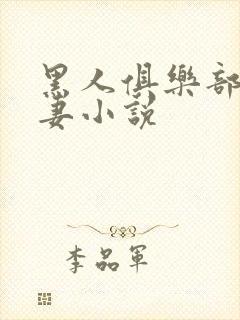 黑人俱樂部
妻小説
李品軍